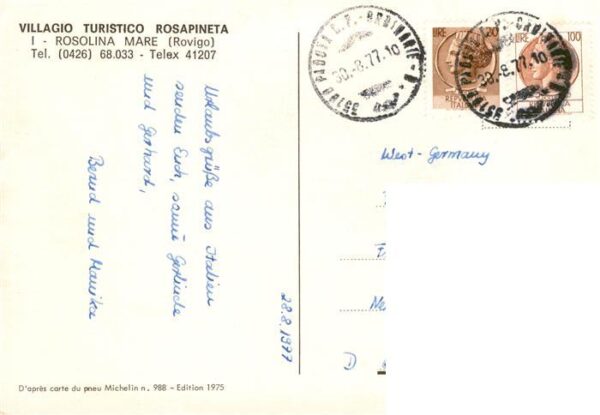 VILLAGIO TURISTICO ROSAPINETA
I - ROSOLINA MARE (Rovigo)
Tel. (0426) 68.033 - Telex 41207
35100 PADOVA C.P. - ORDINARIE
30.-8.77.10
LIRE 120
LIRE 100
35100 PADOVA C.P. - ORDINARIE
30.-8.77.10
West-Germany
Urlaubsgrüße aus Italien
senden Euch, samt Gerlinde
und Gerhard,
Bernd und Monika
28.8.1977
D
D'après carte du pneu Michelin n. 988 - Edition 1975